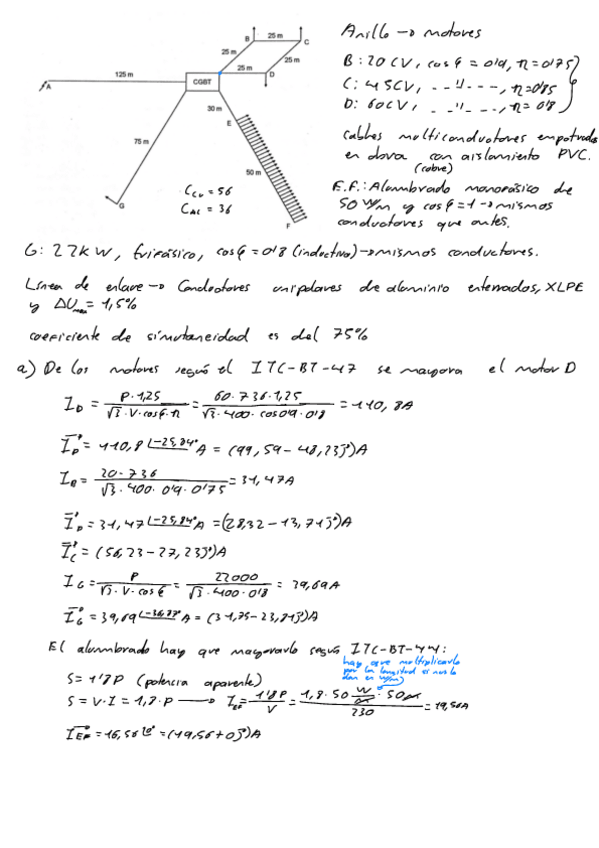 Anillo → motores
B: 20 CV, cos φ = 0'9, η = 0'75
C: 45CV, - - " - - -, η = 0'85
D: 60CV, - - " - - -, η = 0'8
cables multiconductores empotrados
en obra con aislamiento PVC.
(cobre)
E.F.: Alumbrado monofásico de
50 W/m y cos φ = 1 → mismos
conductores que antes.
B
25 m
C
25 m
25 m
25 m
D
125 m
A
CGBT
30 m
E
75 m
50 m
G
F
C_Cu = 56
C_AL = 36
G: 22kW, trifásico, cos φ = 0'8 (inductivo) → mismos conductores.
Línea de enlace → Conductores unipolares de aluminio enterrados, XLPE
y ΔUmax = 1,5%
coeficiente de simultaneidad es del 75%
a) De los motores según el ITC-BT-47 se mayora el motor D
I_D = P·1,25 / √3·V·cosφ·η = 60·736·1,25 / √3·400·cos0'9·0'8 = 110,8A
I_D = 110,8 ∠-25,84° A = (99,59 - 48,23j)A
I_B = 20·736 / √3·400·0'9·0'75 = 31,47A
I_B = 31,47 ∠-25,84° A = (28,32 - 13,71j)A
I_C = (56,23 - 27,23j)A
I_G = P / √3·V·cosφ = 22000 / √3·400·0'8 = 39,69A
I_G = 39,69 ∠-36,87° A = (31,75 - 23,81j)A
El alumbrado hay que mayorarlo según ITC-BT-44:
hay que multiplicarlo
por la longitud si nos lo
dan en W/m
S = 1'8P (potencia aparente)
S = V·I = 1,8·P → I_EF = 1'8P / V = 1,8·50 W/m·50m / 230 = 19,56A
I_EF = 16,56 ∠0° = (19,56 + 0j)A